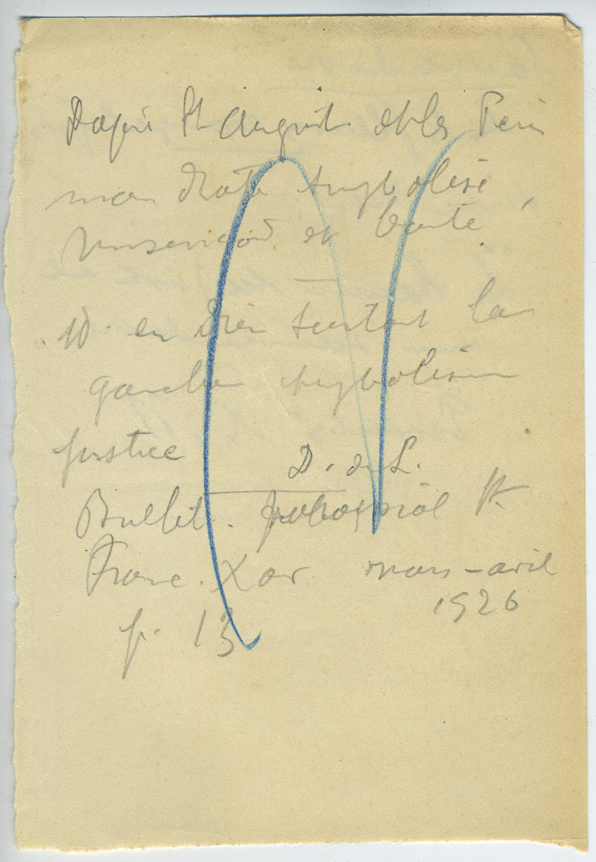 D'après St August. et les Pères
main droite symbolise
miséricorde et bonté
en Dieu tandis la
gauche symbolise
justice
D. du L.
Bullet. paroissial St.
Franc. Xav mars-avril
1926
p. 13